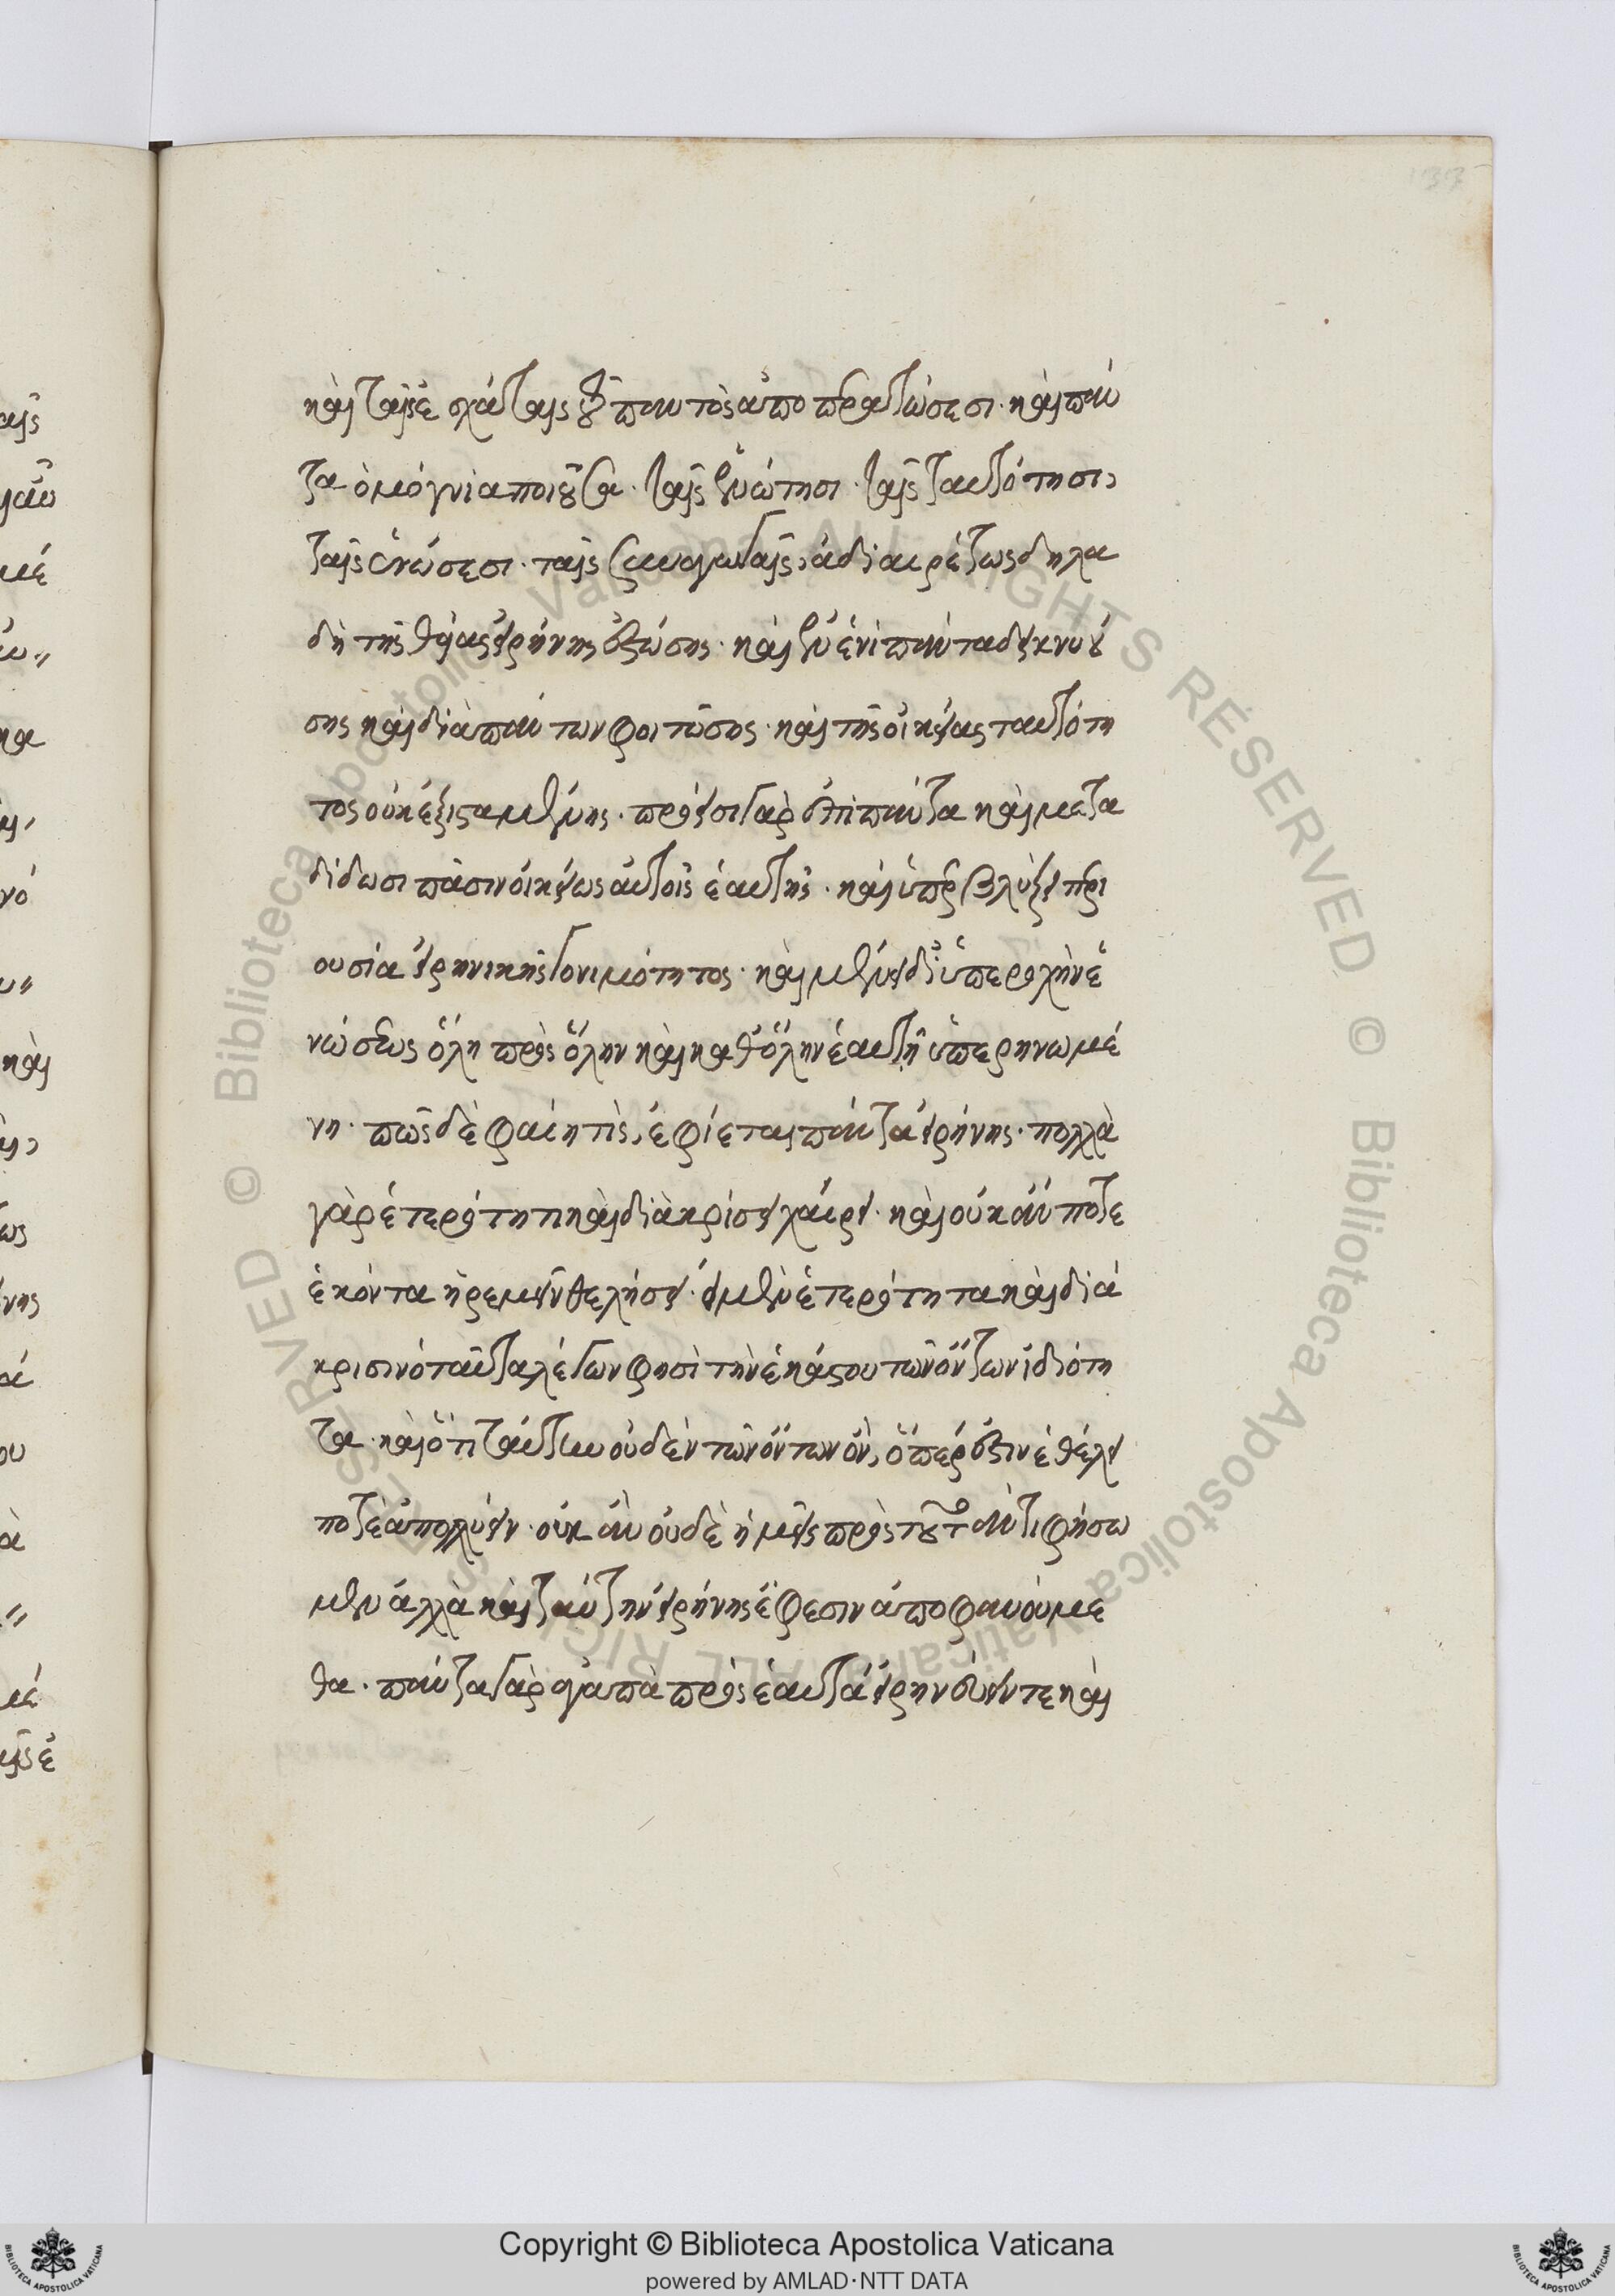 καὶ ταῖς ἐσχάταις τοῦ παντὸς ἀποπερατώσεσι· καὶ πάν
τα ὁμόγνια ποιοῦσα· ταῖς ἑνότησι· ταῖς ταυτότησι,
ταῖς ἑνώσεσι· ταῖς συναγωγαῖς, ἀδιαιρέτως δηλα
δὴ τῆς θείας εἰρήνης ἑστώσης· καὶ ἐν ἑνὶ πάντα δεικνυού
σης καὶ διὰ πάντων φοιτώσης· καὶ τῆς οἰκείας ταυτότη
τος οὐκ ἐξισταμένης· πρόεισι γὰρ ἐπὶ πάντα καὶ μετα
δίδωσι πᾶσιν οἰκείως αὐτοῖς ἑαυτῆς· καὶ ὑπερβλύζει περι
ουσία εἰρηνικῆς γονιμότητος· καὶ μένει δι' ὑπεροχὴν ἑ
νώσεως ὅλη πρὸς ὅλην καὶ καθ' ὅλην ἑαυτῇ ὑπερηνωμέ
νη· πῶς δὲ φαίη τὶς, ἐφίεται πάντα εἰρήνης· πολλὰ
γὰρ ἑτερότητι καὶ διακρίσει χαίρει· καὶ οὐκ ἄν ποτε
ἑκόντα ἠρεμεῖν θελήσει· εἰ μὲν ἑτερότητα καὶ διά
κρισιν ὁ ταῦτα λέγων φησὶ τὴν ἑκάστου τῶν ὄντων ἰδιότη
τα· καὶ ὅτι ταύτην οὐδὲν τῶν ὄντων ὂν, ὅπερ ἐστιν ἐθέλει
ποτὲ ἀπολλύειν· οὐκ ἂν οὐδὲ ἡμεῖς πρὸς τοῦτο ἀντιφήσω
μεν ἀλλὰ καὶ ταύτην εἰρήνης ἔφεσιν ἀποφανούμε
θα· πάντα γὰρ ἀγαπᾶ πρὸς ἑαυτὰ εἰρηνεύειν τε καὶ
Copyright © Biblioteca Apostolica Vaticana
powered by AMLAD·NTT DATA